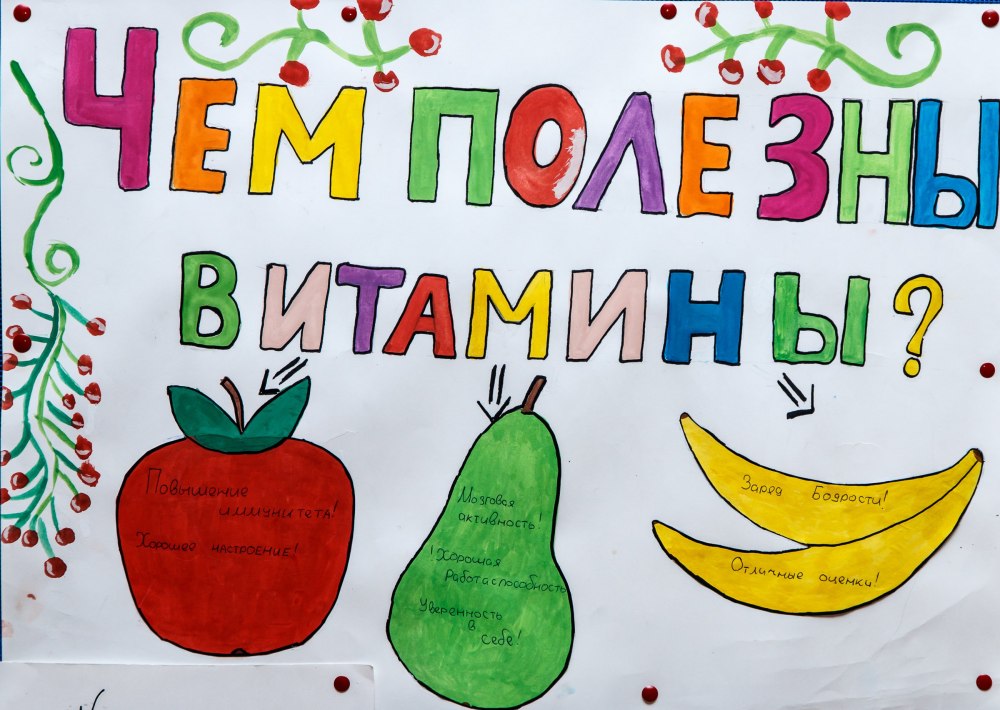 Чем полезны
витамины?
Повышение
иммунитета!
Хорошее настроение!
Мозговая
активность!
!Хорошая
работаспособность
Уверенность
в
себе!
Заряд Бодрости!
Отличные оценки!